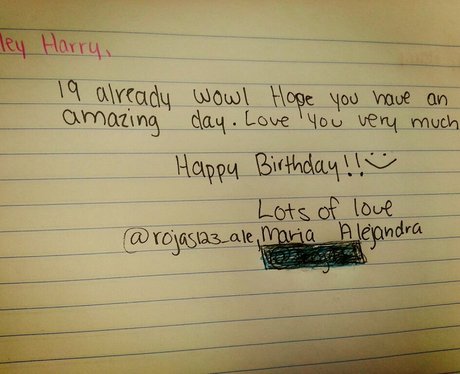 ley Harry,
19 already wow! Hope you have an
amazing day. Love you very much
Happy Birthday!! :)
Lots of love
@rojas123_ale, Maria Alejandra